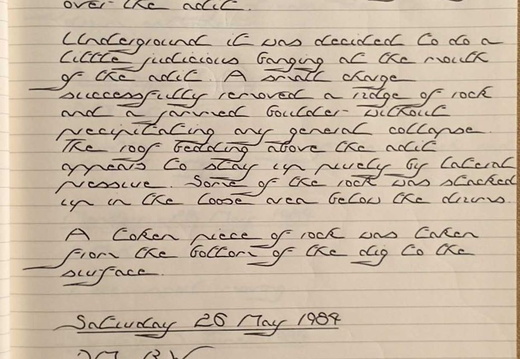 over the adit.
Underground it was decided to do a
little judicious banging at the mouth
of the adit. A small charge
successfully removed a ridge of rock
and a jammed boulder without
precipitating any general collapse.
The roof bedding above the adit
appears to stay up purely by lateral
pressure. Some of the rock was stacked
up in the loose area below the drums.
A token piece of rock was taken
from the bottom of the dig to the
surface.
Saturday 26 May 1984